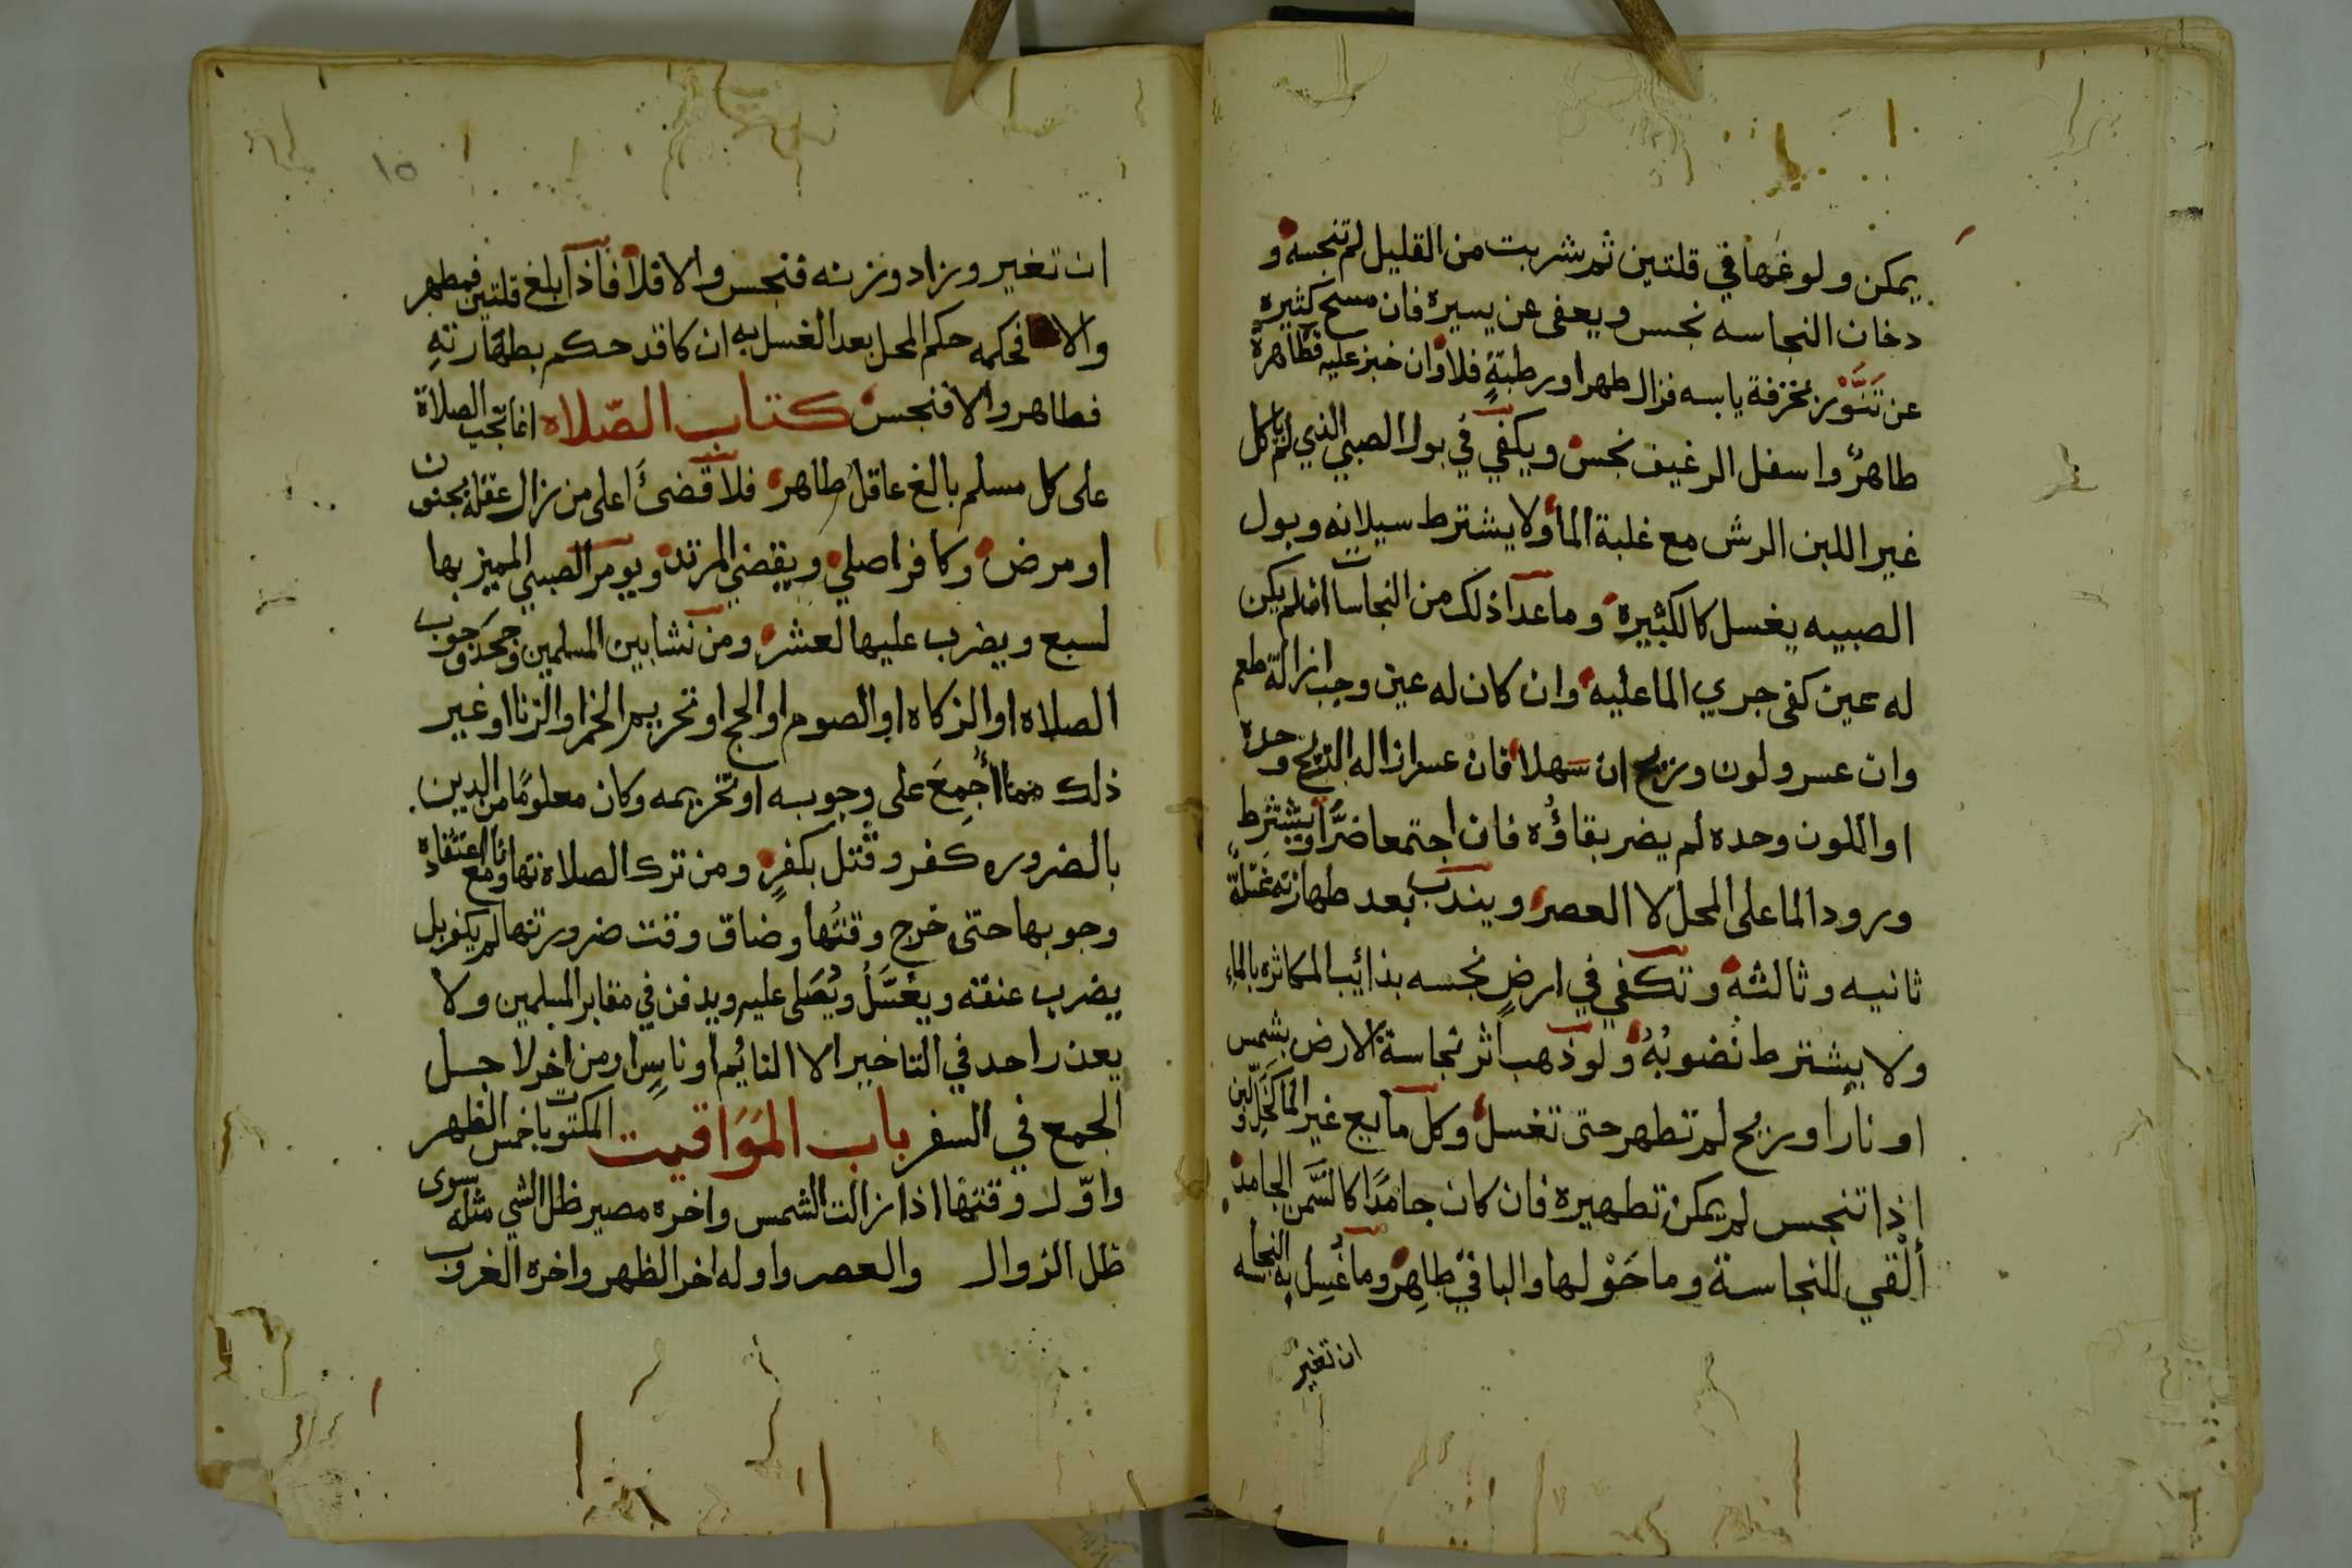 يمكن ولوغها في قلتين ثم شربت من القليل لم تنجسه و
دخان النجاسه نجس ويعفى عن يسيره فان مسح كثيره
عن تنور بخرقة يابسه فزال طهر او رطبة فلا وان خبز عليه فظاهره
طاهر واسفل الرغيف نجس ويكفي في بول الصبي الذي لم ياكل
غير اللبن الرش مع غلبة الما ولا يشترط سيلانه وبول
الصبيه يغسل كالكبيره وما عدا ذلك من النجاسات ان لم يكن
له عين كفى جري الما عليه وان كان له عين وجب ازالة طعم
وان عسر ولون وريح ان سهلا فان عسر ازاله الريح وحده
او اللون وحده لم يضر بقاؤه فان اجتمعا ضرا ويشترط
ورود الما على المحل لا العصر ويندب بعد طهارته غسلة
ثانيه وثالثه وتكفي في ارض نجسه بذائب المكاثره بالماء
ولا يشترط نضوبه ولو ذهب اثر نجاسة الارض بشمس
او نار او ريح لم تطهر حتى تغسل وكل مايع غير الما كخل ولبن
اذا تنجس لم يمكن تطهيره فان كان جامدا كالسمن الجامد
ألقي النجاسة وما حولها والباقي طاهر وما غسل به النجاسه
ان تغير
١٥
ان تغير وزاد وزنه فنجس والا فلا فاذا بلغ قلتين فمطهر
والا فحكمه حكم المحل بعد الغسل به ان كا قد حكم بطهارته
فطاهر والا فنجس كتاب الصلاه انما تجب الصلاة
على كل مسلم بالغ عاقل طاهر فلا قضئ على من زال عقله بجنون
او مرض وكافر اصلي ويقضي المرتد ويومر الصبي المميز بها
لسبع ويضرب عليها لعشر ومن نشا بين المسلمين وجحد وجوب
الصلاه او الزكاه او الصوم او الحج او تحريم الخمر او الزنا او غير
ذلك مما أجمع على وجوبه او تحريمه وكان معلوما من الدين
بالضروره كفر وقتل بكفر ومن ترك الصلاة تهاونا مع اعتقاده
وجوبها حتى خرج وقتها وضاق وقت ضرورتها لم يكفر بل
يضرب عنقه ويغسل ويصلى عليه ويدفن في مقابر المسلمين ولا
يعذر احد في التاخير الا النائم او ناسٍ او من اخر لاجل
الجمع في السفر باب المواقيت المكتوبات خمس الظهر
واول وقتها اذا زالت الشمس واخره مصير ظل الشي مثله سوى
ظل الزوال والعصر واوله اخر الظهر واخره الغروب